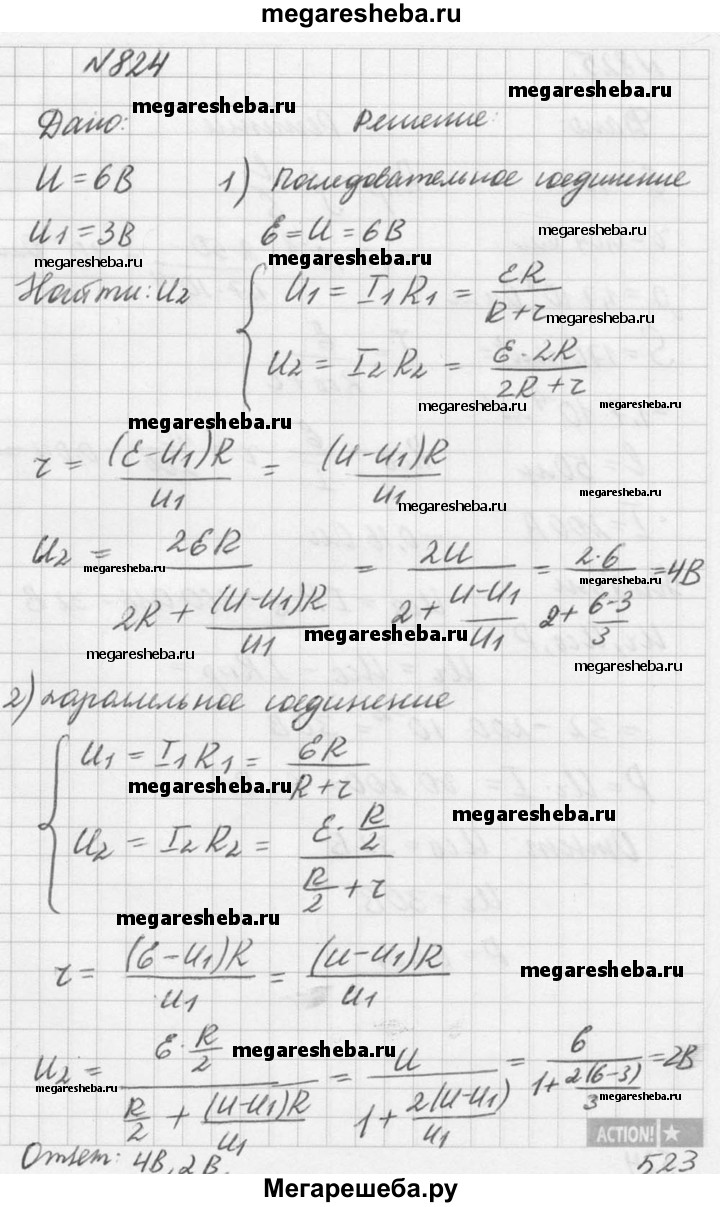 megaresheba.ru
№824
megaresheba.ru
megaresheba.ru
Дано: Решение:
U = 6В 1) Последовательное соединение
U1 = 3В ℰ = U = 6В megaresheba.ru
megaresheba.ru megaresheba.ru
Найти: U2 U1 = I1 R1 = ℰR / R + r
megaresheba.ru
U2 = I2 R2 = ℰ·2R / 2R + r
megaresheba.ru megaresheba.ru
megaresheba.ru
r = (ℰ-U1)R / U1 = (U-U1)R / U1
megaresheba.ru megaresheba.ru
U2 = 2ℰR / 2R + (U-U1)R / U1 = 2U / 2 + U-U1 / U1 = 2·6 / 2 + 6-3 / 3 = 4В
megaresheba.ru megaresheba.ru megaresheba.ru
megaresheba.ru megaresheba.ru
megaresheba.ru
2) паралельное соединение
U1 = I1 R1 = ℰR / R + r
megaresheba.ru
megaresheba.ru
U2 = I2 R2 = ℰ· R/2 / R/2 + r
megaresheba.ru
r = (ℰ-U1)R / U1 = (U-U1)R / U1
megaresheba.ru
U2 = ℰ· R/2 / R/2 + (U-U1)R / U1 = U / 1 + 2(U-U1) / U1 = 6 / 1 + 2(6-3) / 3 = 2В
megaresheba.ru
megaresheba.ru megaresheba.ru
ACTION!
Ответ: 4В, 2В.
523
Мегарешеба.ру